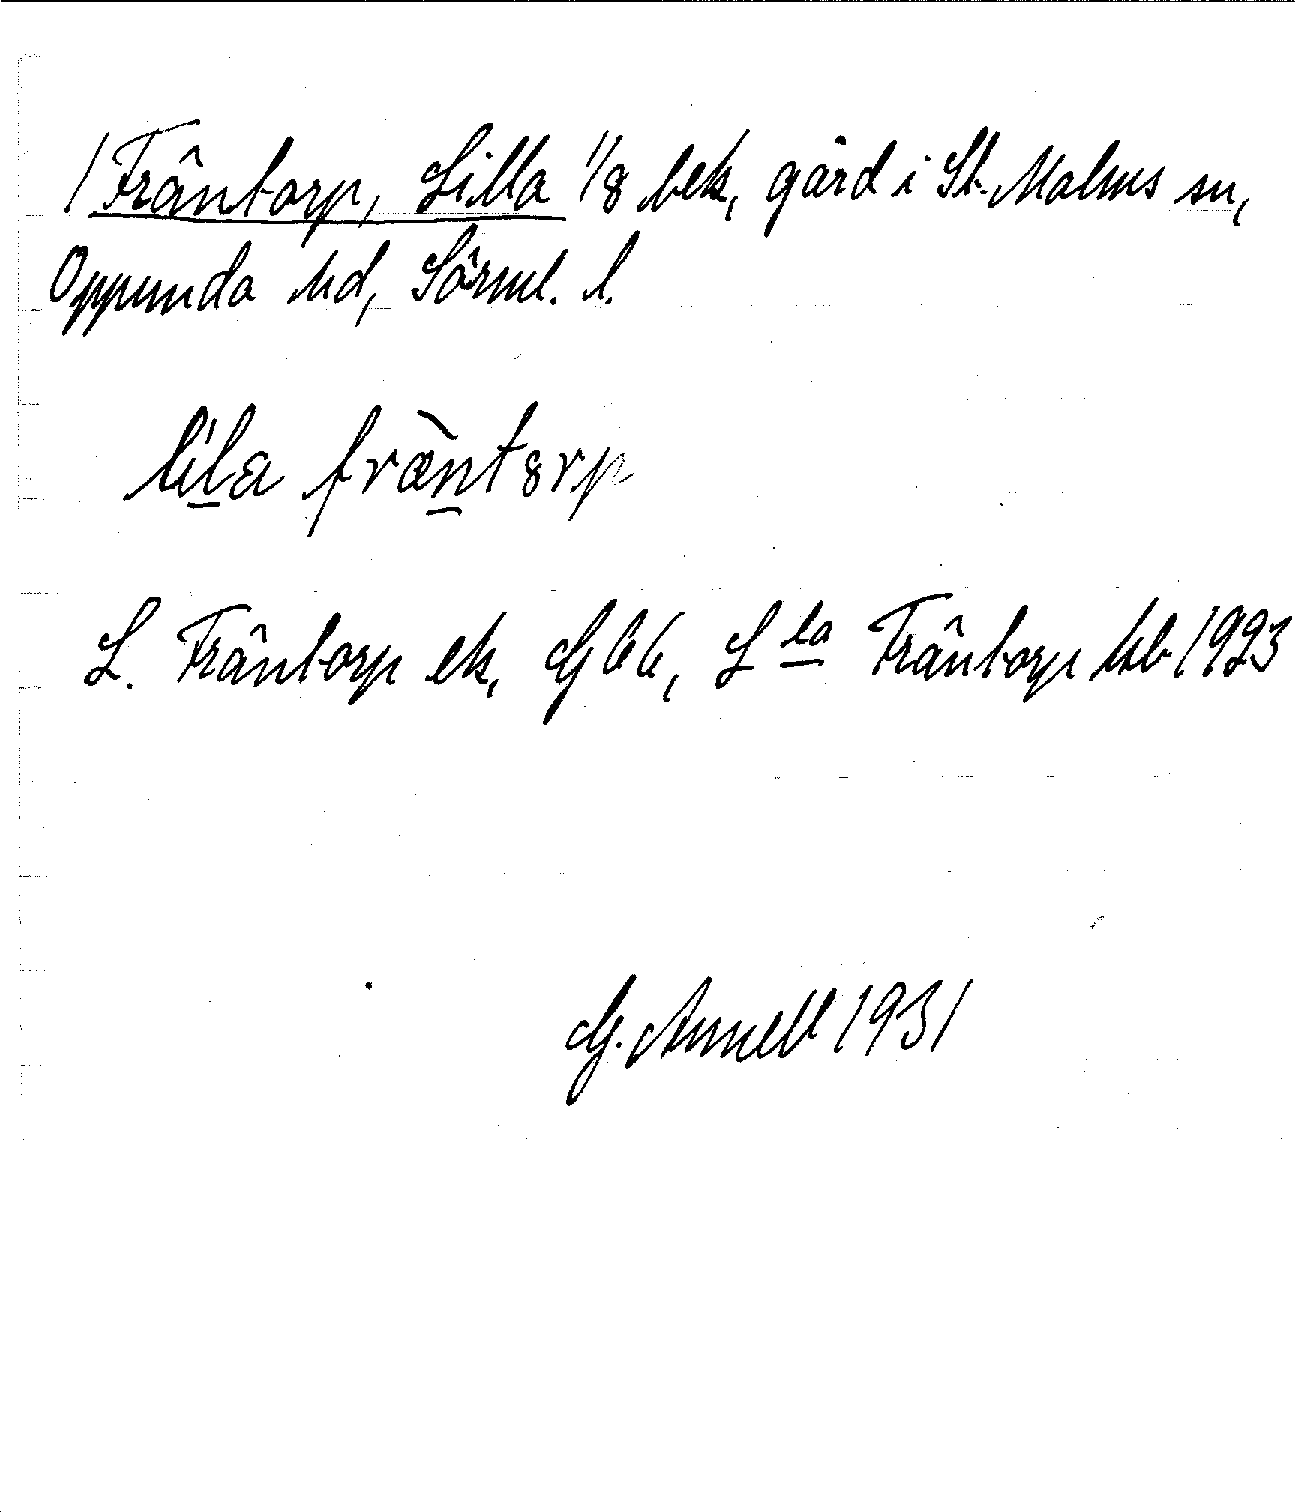 / Frântorp, Lilla 1/8 bek, gård i St. Malms sn,
Oppunda hd, Sörml. l.
lila fræntorp
L. Frântorp ek, GEK, L la Frântorp kb 1923
G. Annell 1931